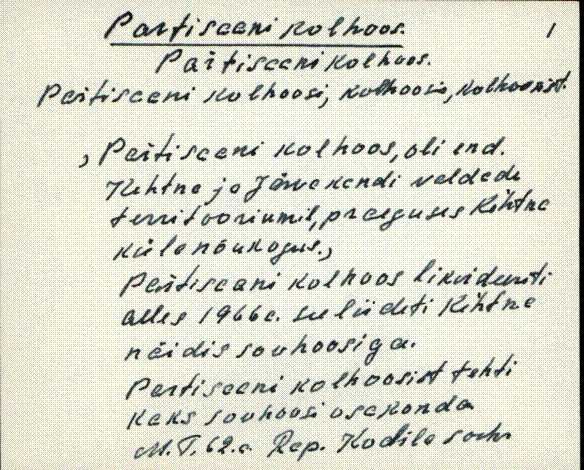 Partisaani kolhoos. 1
Partisaani kolhoos.
Partisaani kolhoosi, kolhoosis, kolhoosist.
, Partisaani kolhoos, oli end.
Kehtna ja Järvakandi valdade
territooriumil, praeguses Kehtna
külanõukogus.,
Partisaani kolhoos likvideeriti
alles 1966 a. see liideti Kehtna
näidissovhoosiga.
Partisaani kolhoosist tehti
kaks sovhoosi osakonda
M.T. 62.a Rap. Kodila